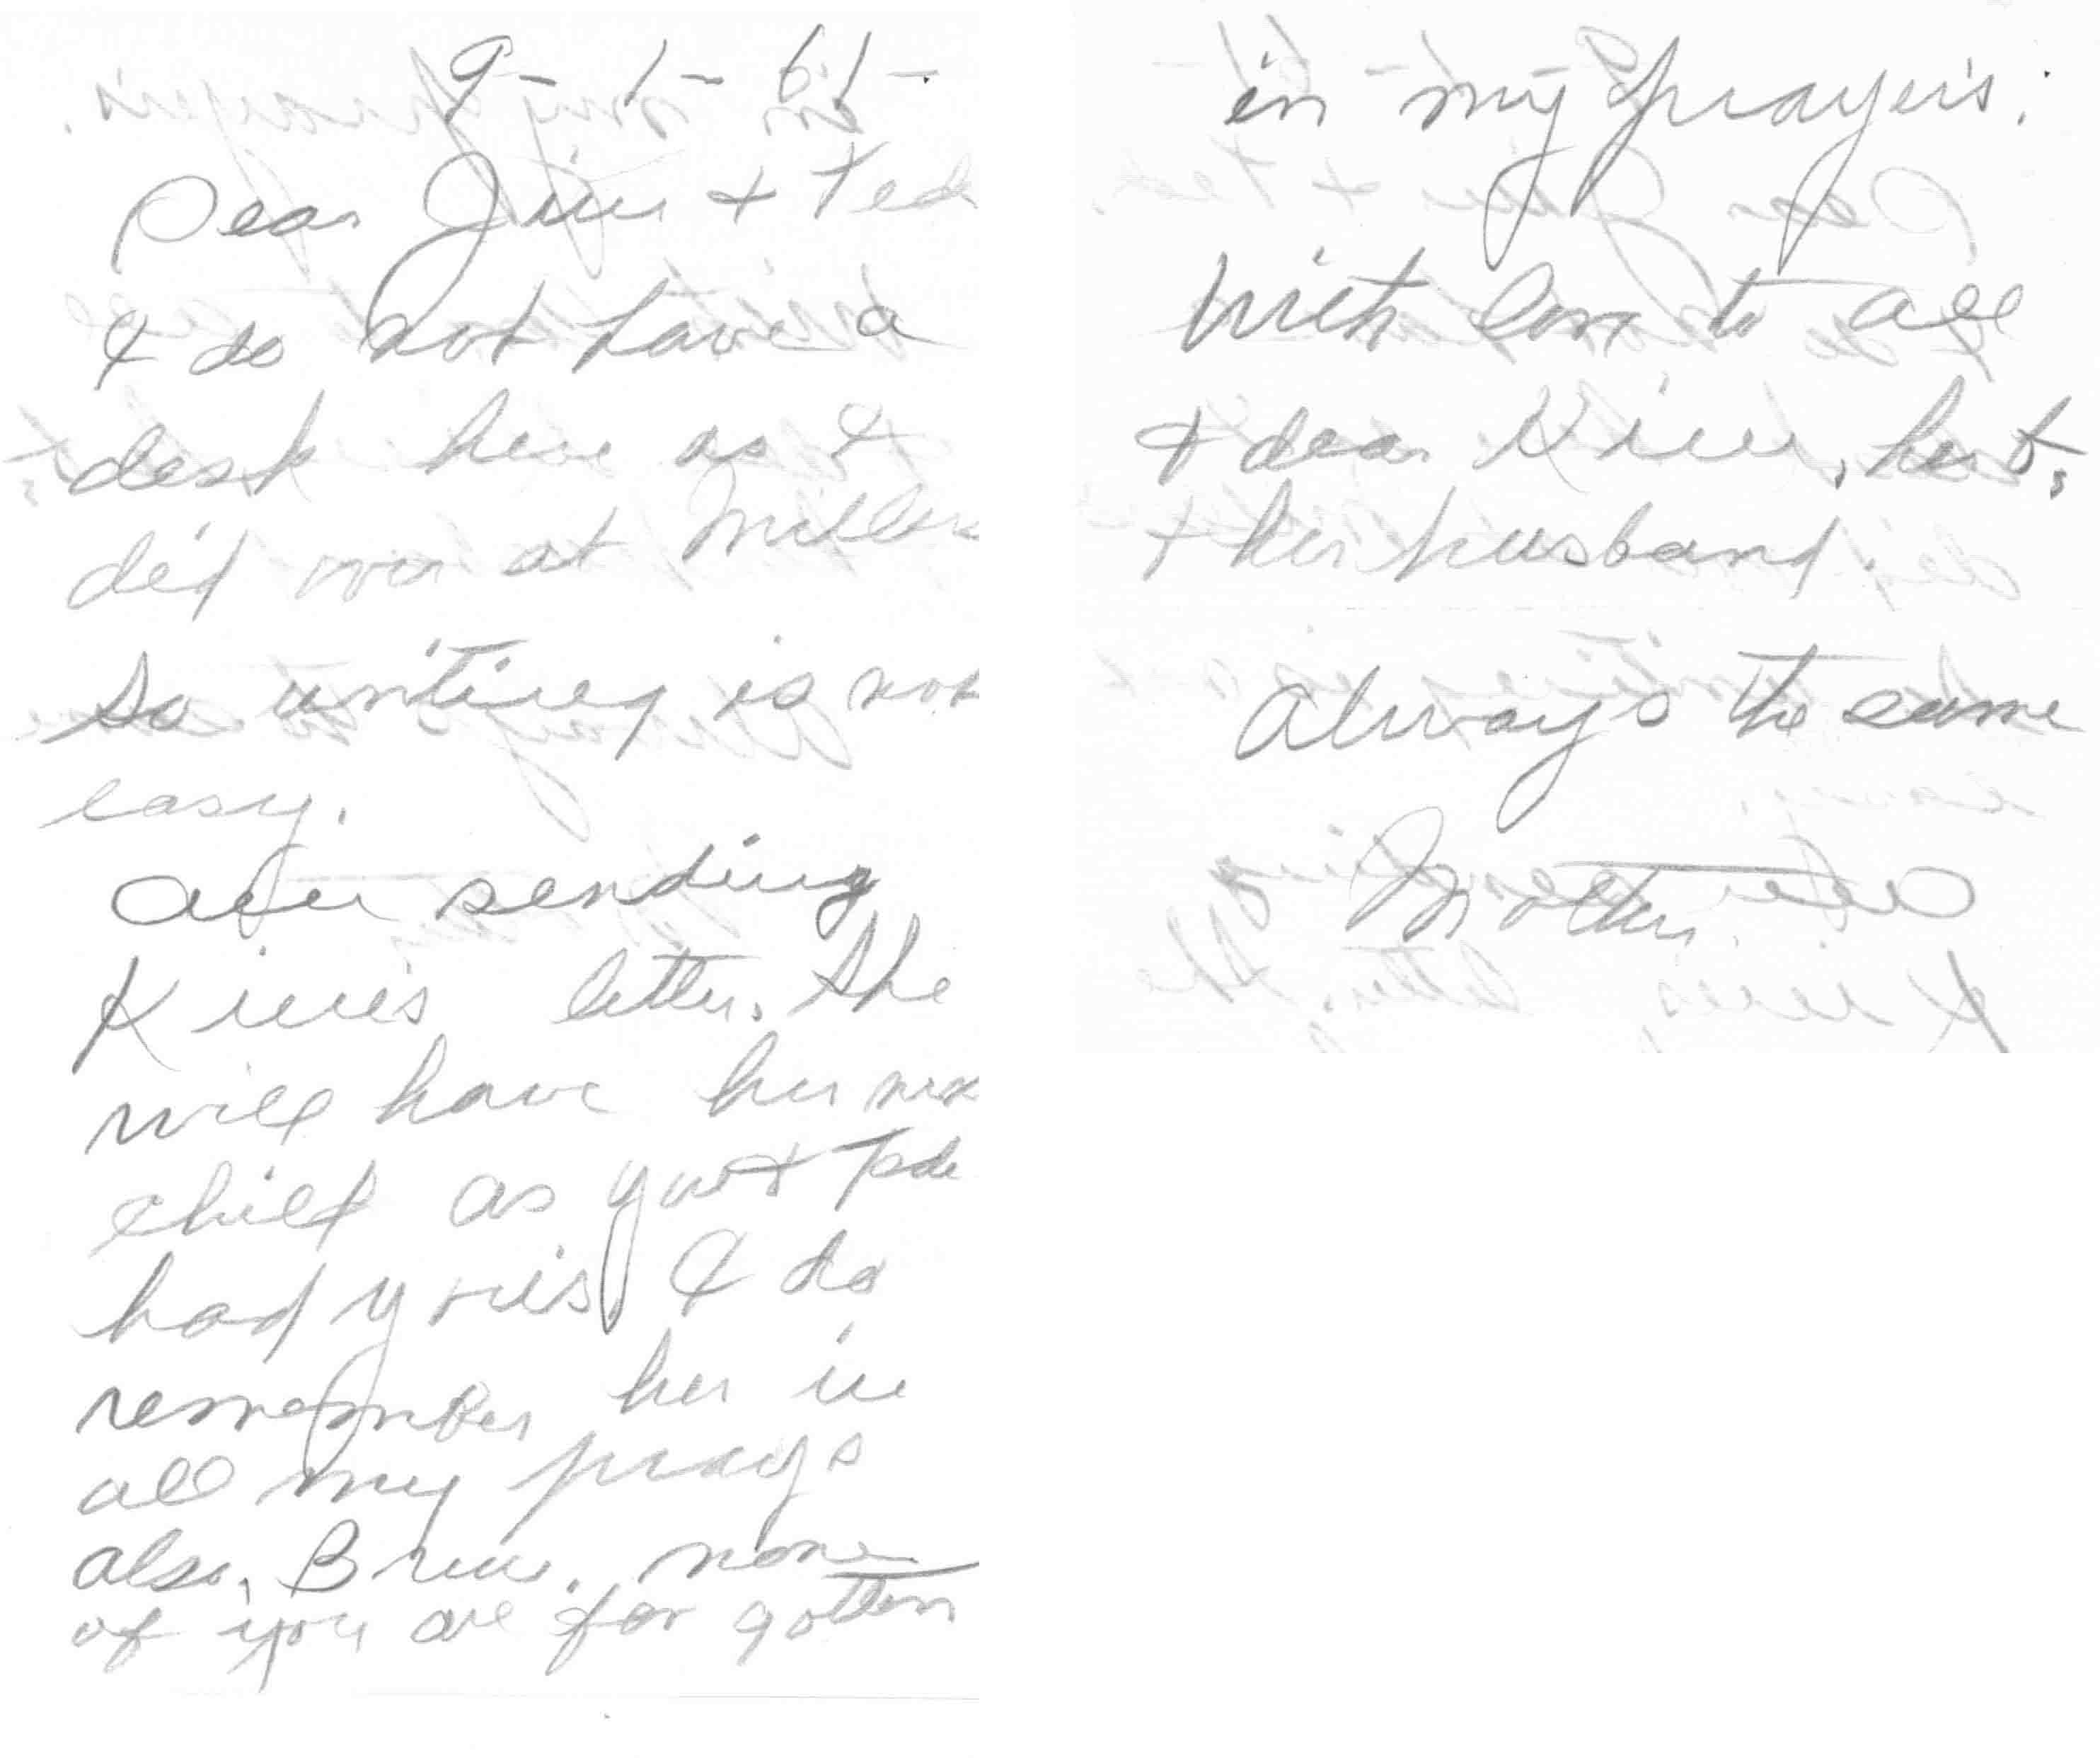 9-1-61-
Dear Jim + Ted
I do not have a
desk here as I
did over at Millers
So writing is not
easy.
After sending
Kim's letter. She
will have her nex
child as you + Ted
had yours I do
remember her in
all my prays
also, Bruce. none
of you are for gotten
in my prayers.
With love to all
+ dear Kim,
+ her husband.
Always the same
Mother.